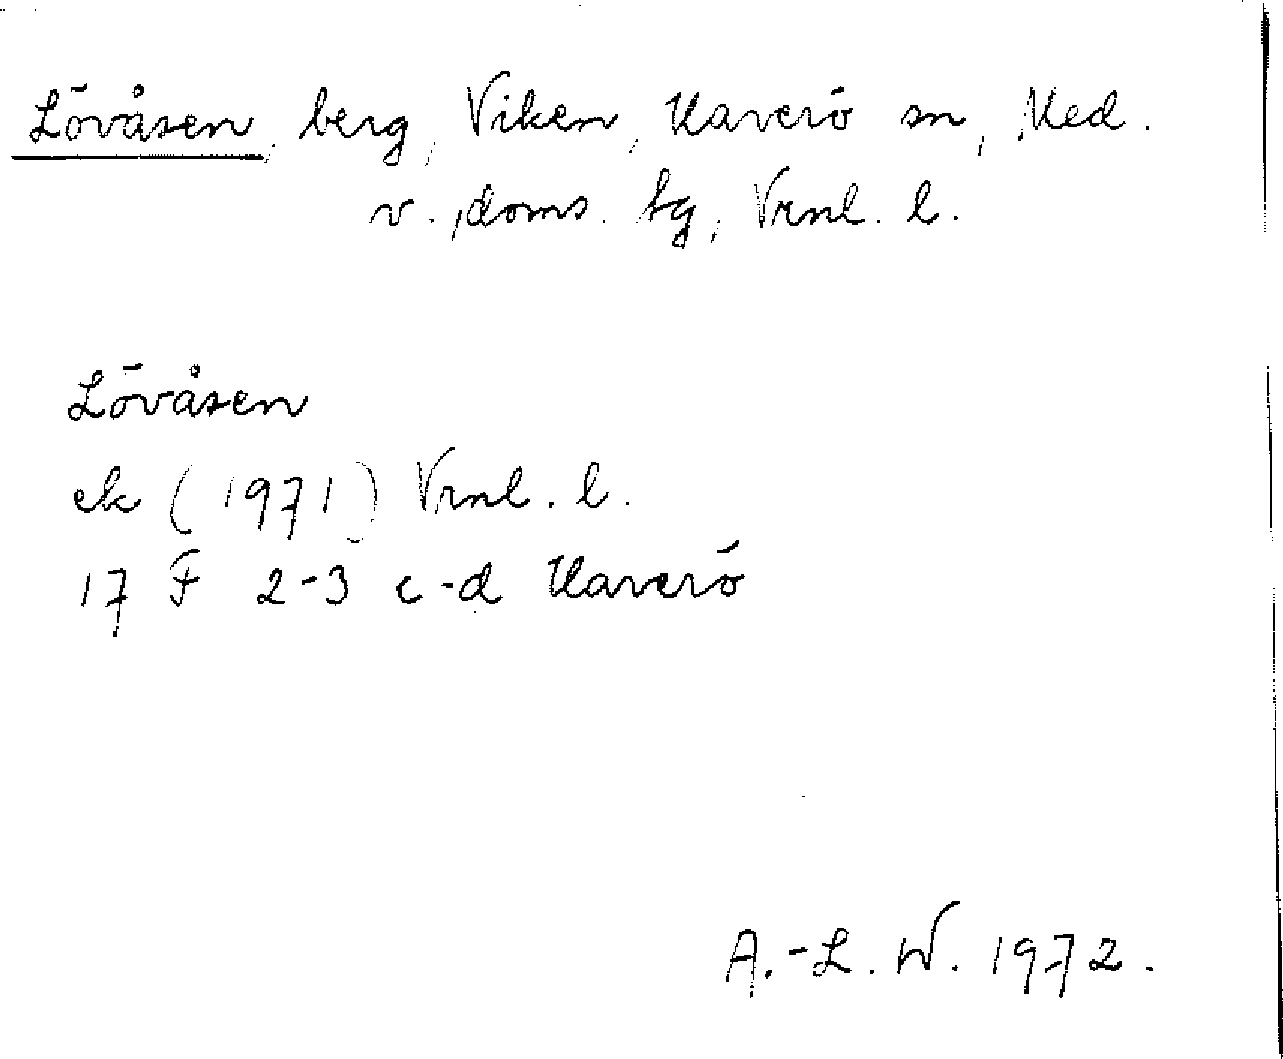 Lövåsen, berg, Viken, Haverö sn, Med.
v., doms. tg, Vrnl. l.
Lövåsen
ek (1971) Vrnl. l.
17 F 2-3 c-d Haverö
A.-L. W. 1972.